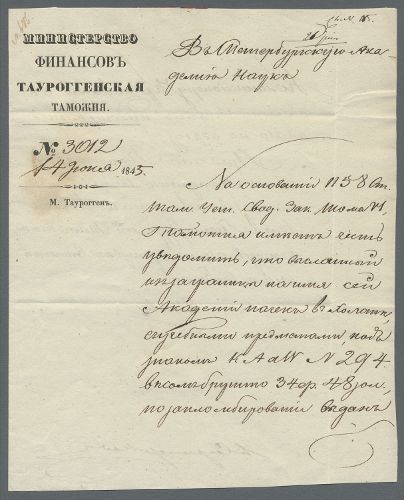 МИНИСТЕРСТВО
ФИНАНСОВЪ
ТАУРОГГЕНСКАЯ
ТАМОЖНЯ.
№ 3012
14 Июня 1845
М. Таурогген.
Въ Петербургскую Ака-
демію Наукъ
На основаніи 1158 Ст.
Там. Уст. Свод. Зак. тома VI,
Таможня имѣетъ честь
увѣдомить, что высланный
изъ заграницы на имя сей
Академіи пачекъ въ холстѣ,
съ учебными предметами, подъ
знакомъ K A d W N 294
вѣсомъ брутто 34 ф. 48 зол.
по запломбированіи выданъ